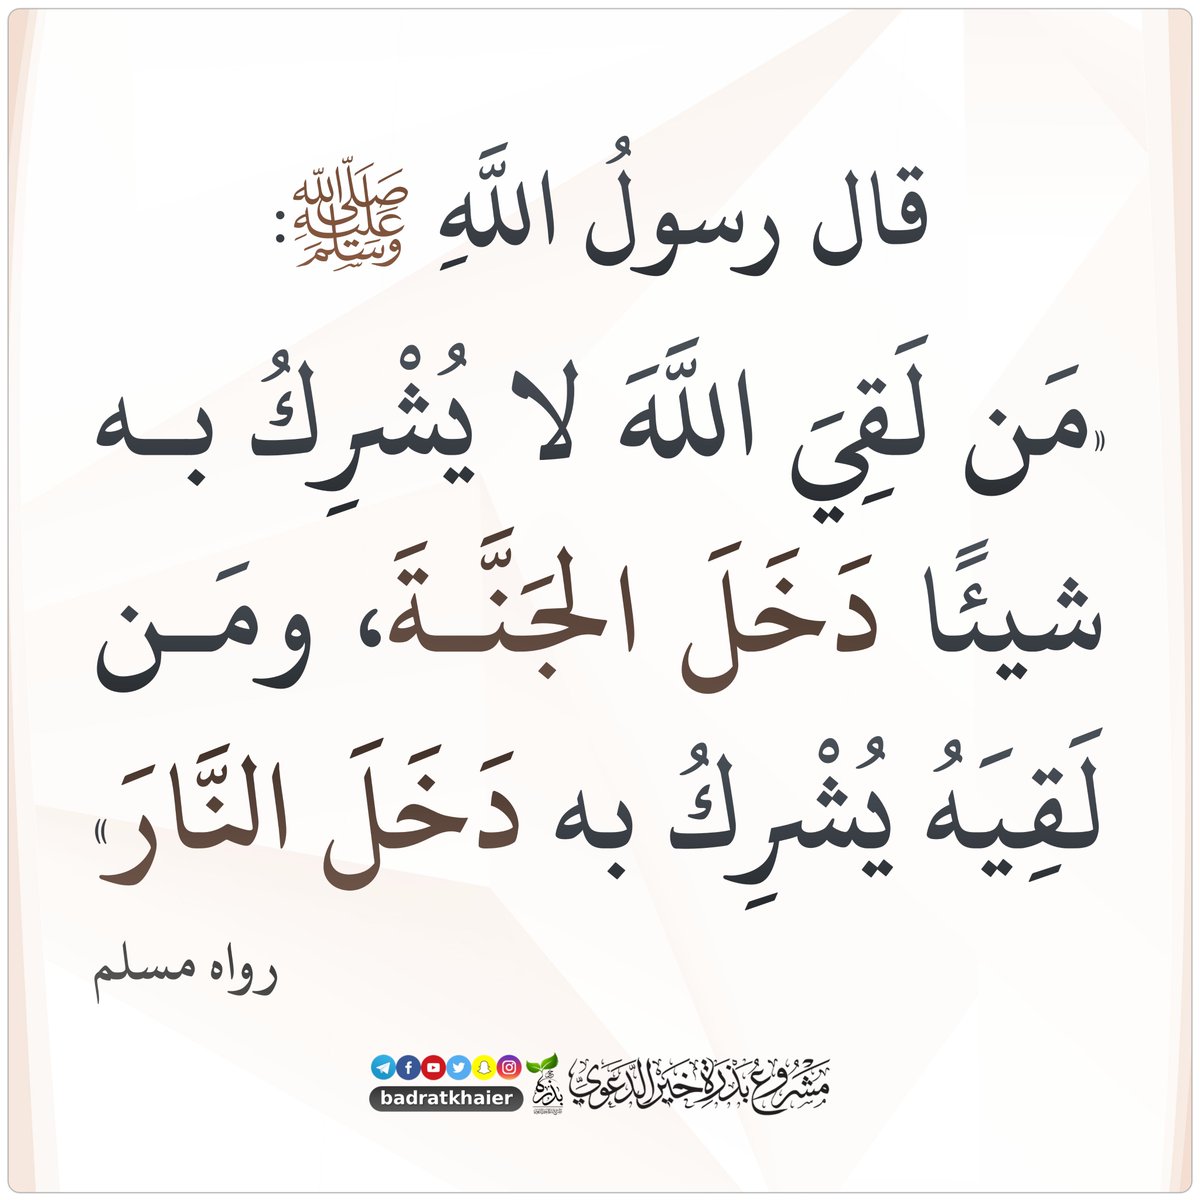 قال رسولُ اللَّهِ ﷺ:
«مَن لَقِيَ اللَّهَ لا يُشْرِكُ بـه
شيئًا دَخَلَ الجَنَّـةَ، ومَـن
لَقِيَهُ يُشْرِكُ به دَخَلَ النَّارَ»
رواه مسلم
مَشْرُوعُ بَذْرَةِ خَيْرٍ الدَّعَوِيّ
badratkhaier